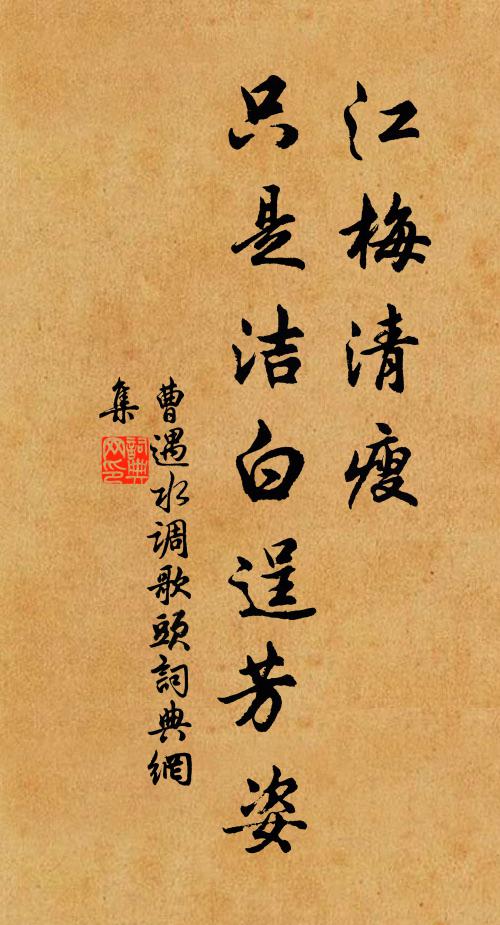 江梅清瘦
只是洁白逞芳姿
曹遇水调歌頭詞典網
集
詞典網印